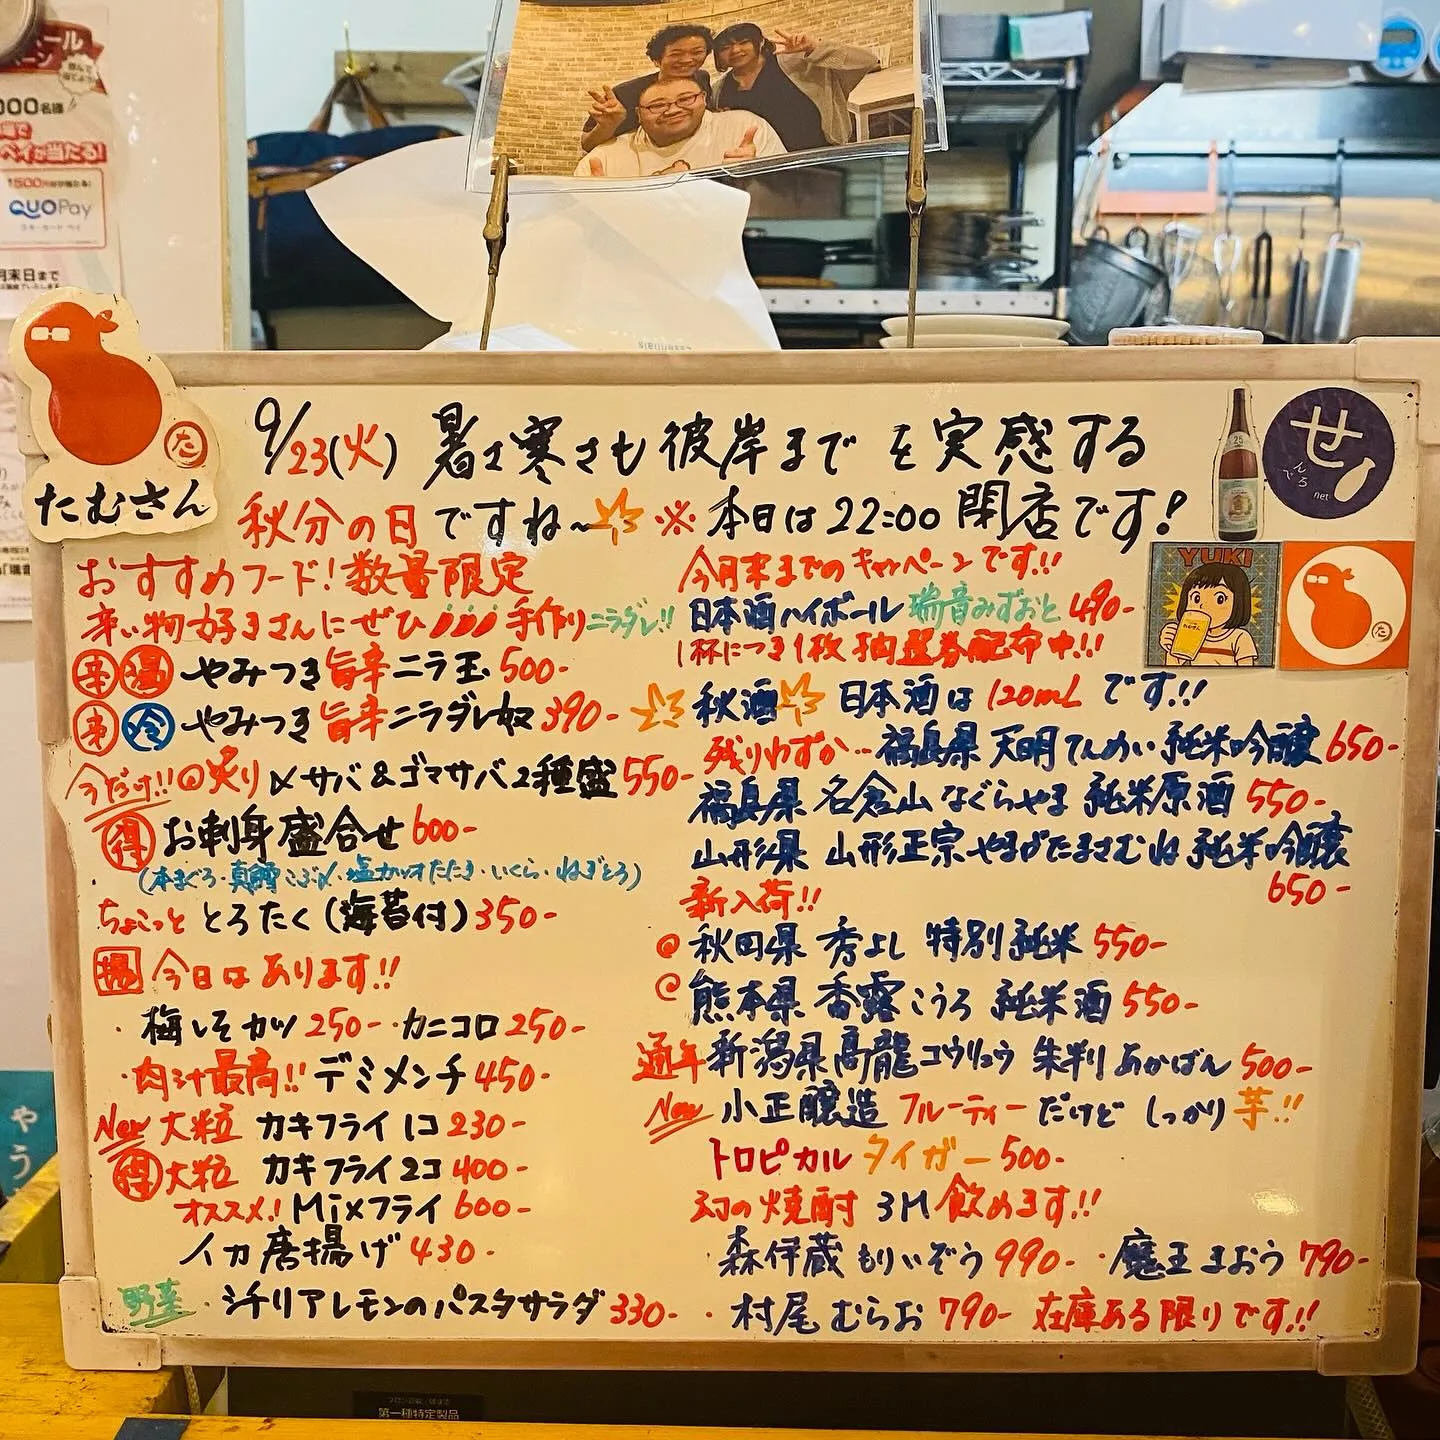 000名様
QUOPay
月末日まで
たむさん
た
9/23(火) 暑さ寒さも彼岸まで を実感する
秋分の日ですね〜 ※本日は22:00閉店です!
せ
んべろ
net
YUKI
おすすめフード!数量限定
辛い物好きさんにぜひ 手作りニラダレ!!
辛 温 やみつき旨辛ニラ玉 500-
辛 冷 やみつき旨辛ニラダレ奴 390-
今だけ!!◎炙り〆サバ&ゴマサバ2種盛 550-
得 お刺身盛合せ 600-
(本まぐろ・真鯛こぶ〆・塩カツオたたき・いくら・ねぎとろ)
ちょこっと とろたく(海苔付) 350-
揚 今日はあります!!
・梅しそカツ 250- ・カニコロ 250-
・肉汁最高!! デミメンチ 450-
New 大粒 カキフライ1コ 230-
得 大粒 カキフライ2コ 400-
オススメ! Mixフライ 600-
イカ唐揚げ 430-
野菜 ・シチリアレモンのパスタサラダ 330-
今月末までのキャンペーンです!!
日本酒ハイボール 瑞音みずおと 490-
1杯につき1枚抽選券配布中!!
秋酒 日本酒は120mLです!!
残りわずか… 福島県 天明てんめい 純米吟醸 650-
福島県 名倉山なぐらやま 純米原酒 550-
山形県 山形正宗やまがたまさむね 純米吟醸
650-
新入荷!!
◎ 秋田県 秀よし 特別純米 550-
◎ 熊本県 香露こうろ 純米酒 550-
通年 新潟県高龍コウリュウ 朱判あかばん 500-
New 小正醸造 フルーティーだけど しっかり芋!!
トロピカルタイガー 500-
幻の焼酎 3M飲めます!!
・森伊蔵もりいぞう 990- ・魔王まおう 790-
・村尾むらお 790- 在庫ある限りです!!
第一種特定製品